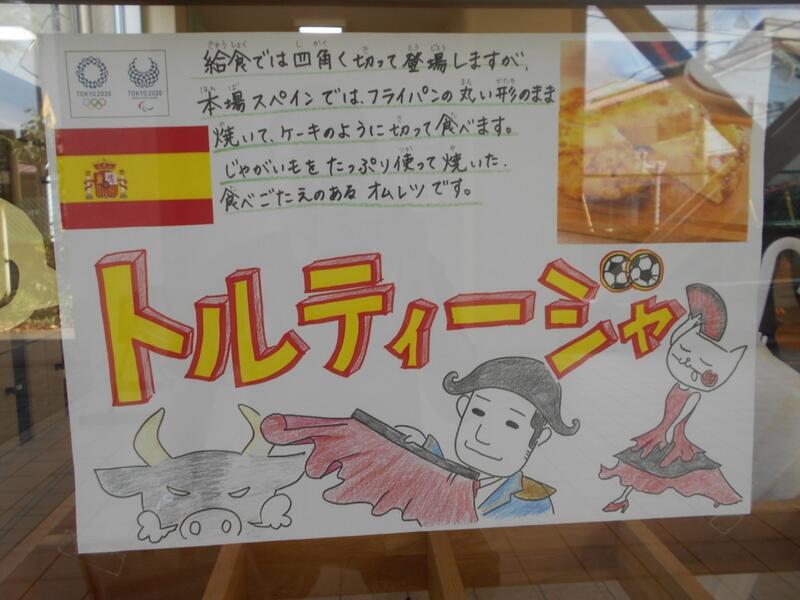 TOKYO 2020
TOKYO 2020
給食では四角く切って登場しますが、
本場スペインでは、フライパンの丸い形のまま
焼いて、ケーキのように切って食べます。
じゃがいもをたっぷり使って焼いた、
食べごたえのあるオムレツです。
トルティージャ